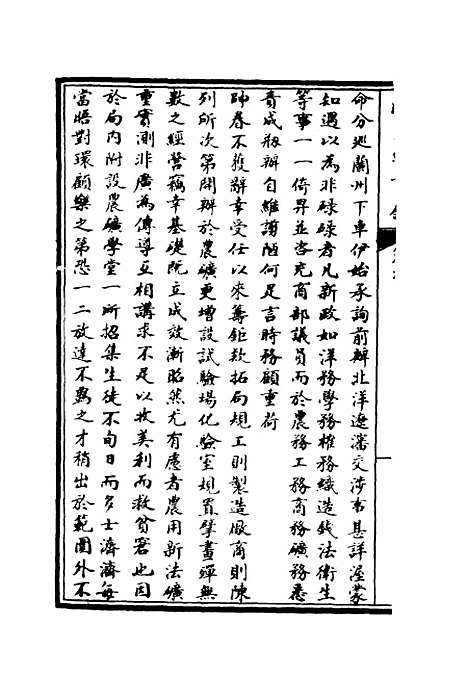 命分巡蘭州下車伊始承詢前辦北洋遼瀋交涉事甚詳渥蒙
知遇以為非碌碌者凡新政如洋務學務榷務織造錢法衛生
等事一一倚畀並咨充商部議員而於農務工務商務礦務悉
責成扐辦自維謭陋何足言時務顧重荷
帥眷不獲辭幸受任以來籌鉅款拓局規工則製造廠商則陳
列所次第開辦於農礦更增設試驗場化驗室規置擘畫殫無
數之經營竊幸基礎既立成效漸昭然尤有慮者農用新法礦
重實測非廣為傳導互相講求不足以收美利而救貧窘也因
於局內附設農礦學堂一所招集生徒不旬日而多士濟濟每
當晤對環顧樂之第恐一二放達不羈之才稍出於範圍外不